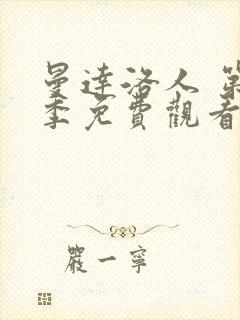 曼達洛人 第
季免費觀看
嚴一寧